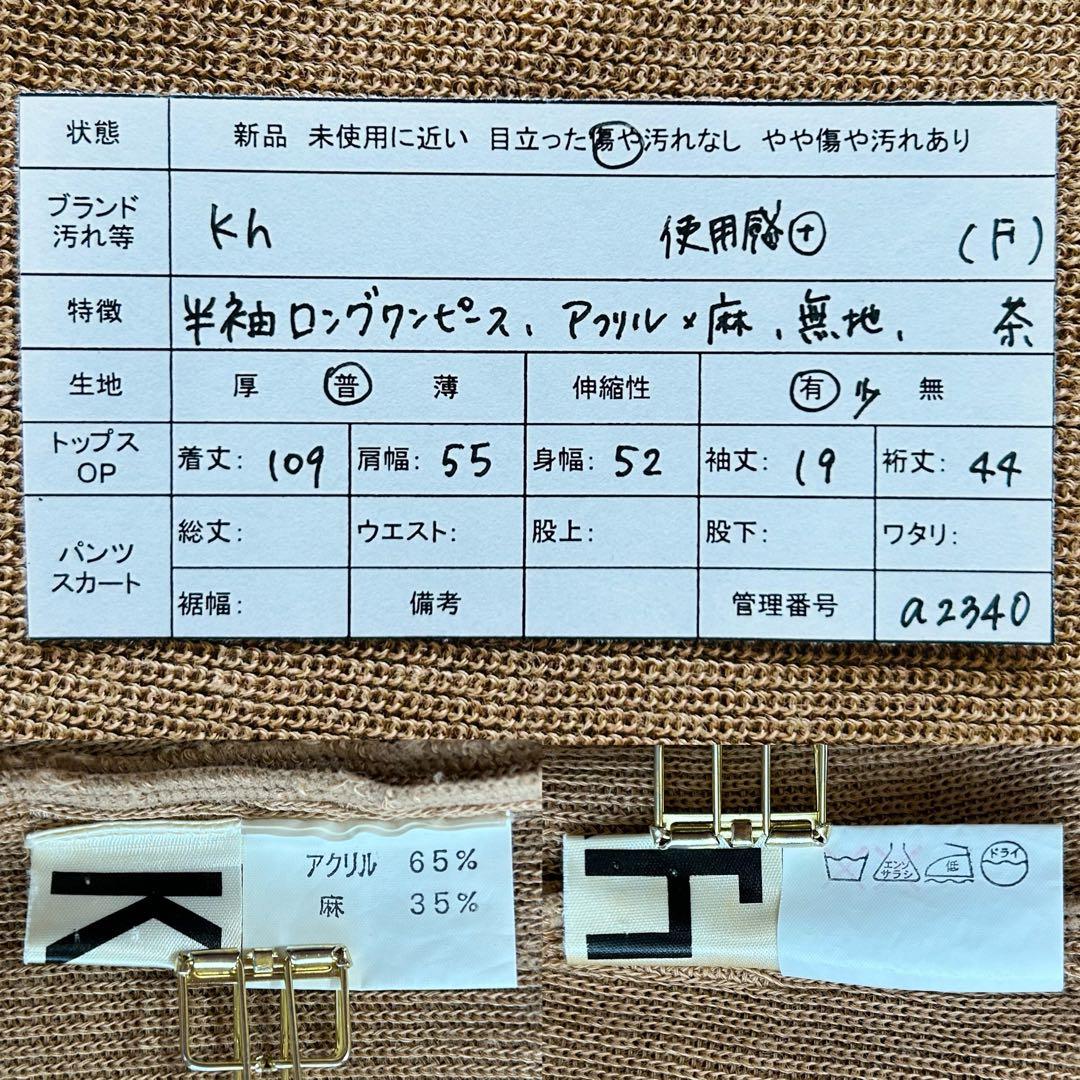 状態 新品 未使用に近い 目立った傷や汚れなし やや傷や汚れあり
ブランド 汚れ等 Kh 使用感⊕ (F)
特徴 半袖ロングワンピース、アクリル×麻、無地、 茶
生地 厚 普 薄 伸縮性 有 少 無
トップス OP 着丈: 109 肩幅: 55 身幅: 52 袖丈: 19 裄丈: 44
パンツ スカート 総丈: ウエスト: 股上: 股下: ワタリ:
裾幅: 備考 管理番号 a2340
K
アクリル 65%
麻 35%
h
エンソ サラシ 低 ドライ